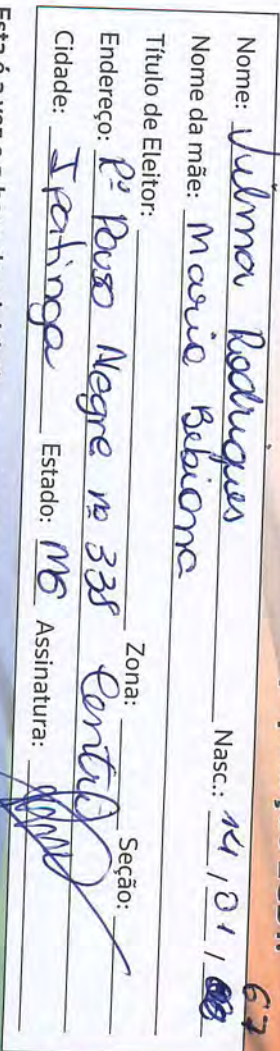 67
Nome: Vilma Rodrigues Nasc.: 14 / 01 /
Nome da mãe: Maria Bebiana
Título de Eleitor: Zona: Seção:
Endereço: Rª Pouso Alegre nº 338 Centro
Cidade: Ipatinga Estado: MG Assinatura: